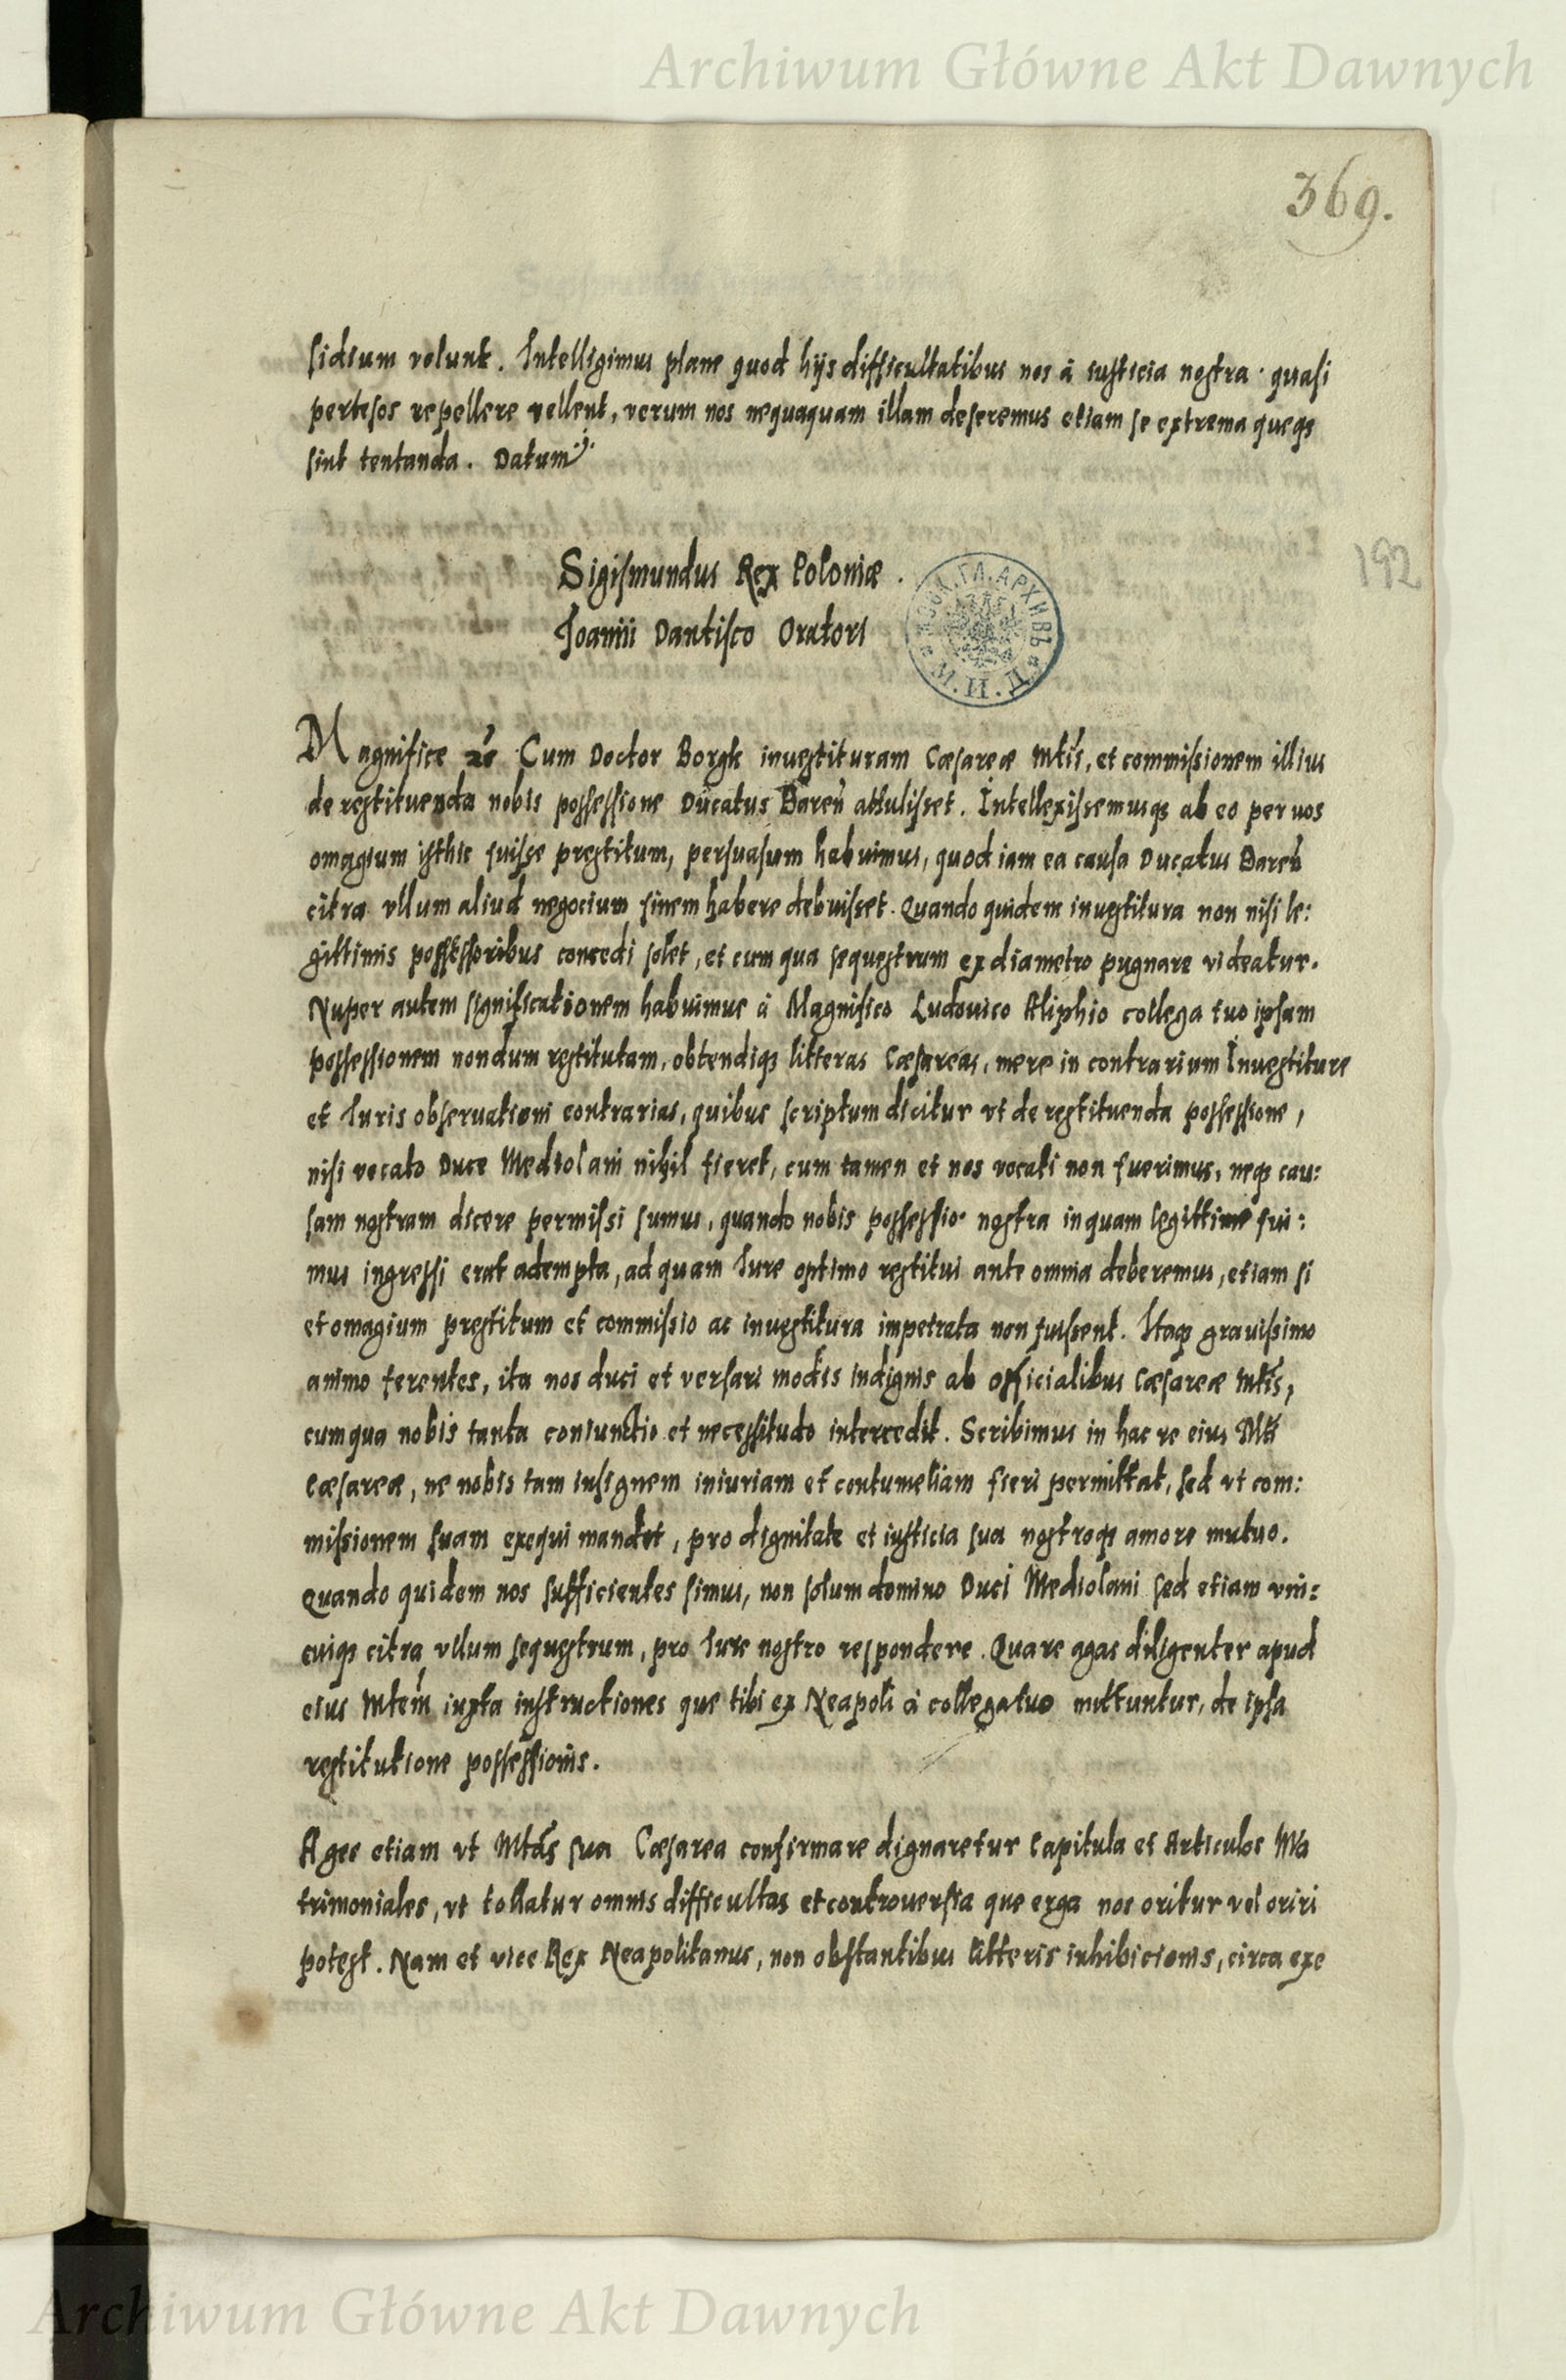 Archiwum Główne Akt Dawnych
369.
sidium volunt. Intelligimus plane quod hijs difficultatibus nos à iusticia nostra quasi
pertesos repellere vellent, verum nos nequaquam illam deseremus etiam se extrema queqꝫ
sint tentanda. Datum
Sigismundus Rex Poloniæ.
192
Ioanni Dantisco Oratori
Magnifice Cum Doctor Borgk inuestituram Cæsareæ Mtis, et commissionem illius
de restituenda nobis possessione Ducatus Bareñ attulisset. Intellexissemusqꝫ ab eo per uos
omagium isthic fuisse prestitum, persuasum habuimus, quod iam ea causa Ducatus Bareñ
citra vllum aliud negocium finem habere debuisset. Quando quidem inuestitura non nisi le:
gittimis possessoribus concedi solet, et cum qua sequestrum ex diametro pugnare videatur.
Nuper autem significationem habuimus à Magnifico Ludouico Aliphio collega tuo ipsam
possessionem nondum restitutam, obtendiqꝫ litteras Cæsareas, mere in contrarium Inuestiture
et Iuris obseruationi contrarias, quibus scriptum dicitur vt de restituenda possessione,
nisi vocato Duce Mediolani nihil fieret, cum tamen et nos vocati non fuerimus, neqꝫ cau:
sam nostram dicere permissi sumus, quando nobis possessio nostra in quam legittime fui:
mus ingressi erat adempta, ad quam Iure optimo restitui ante omnia deberemus, etiam si
et omagium prestitum et commissio ac inuestitura impetrata non fuissent. Itaqꝫ grauissimo
animo ferentes, ita nos duci et versari modis indignis ab officialibus Cæsareæ Mtis,
cum qua nobis tanta coniunctio et necessitudo intercedit. Scribimus in hac re eius Mti
Cæsareæ, ne nobis tam insignem iniuriam et contumeliam fieri permittat, sed vt com:
missionem suam exequi mandet, pro dignitate et iusticia sua nostroqꝫ amore mutuo.
Quando quidem nos sufficientes simus, non solum domino Duci Mediolani sed etiam vni:
cuiqꝫ citra vllum sequestrum, pro Iure nostro respondere. Quare agas diligenter apud
eius Mtem iuxta instructiones que tibi ex Neapoli à collega tuo mittuntur, de ipsa
restitutione possessionis.
Ages etiam vt Mtas sua Cæsarea confirmare dignaretur Capitula et Articulos Ma
trimoniales, vt tollatur omnis difficultas et controuersia que erga nos oritur vel oriri
potest. Nam et vice Rex Neapolitanus, non obstantibus litteris inhibicionis, circa exe
Archiwum Główne Akt Dawnych